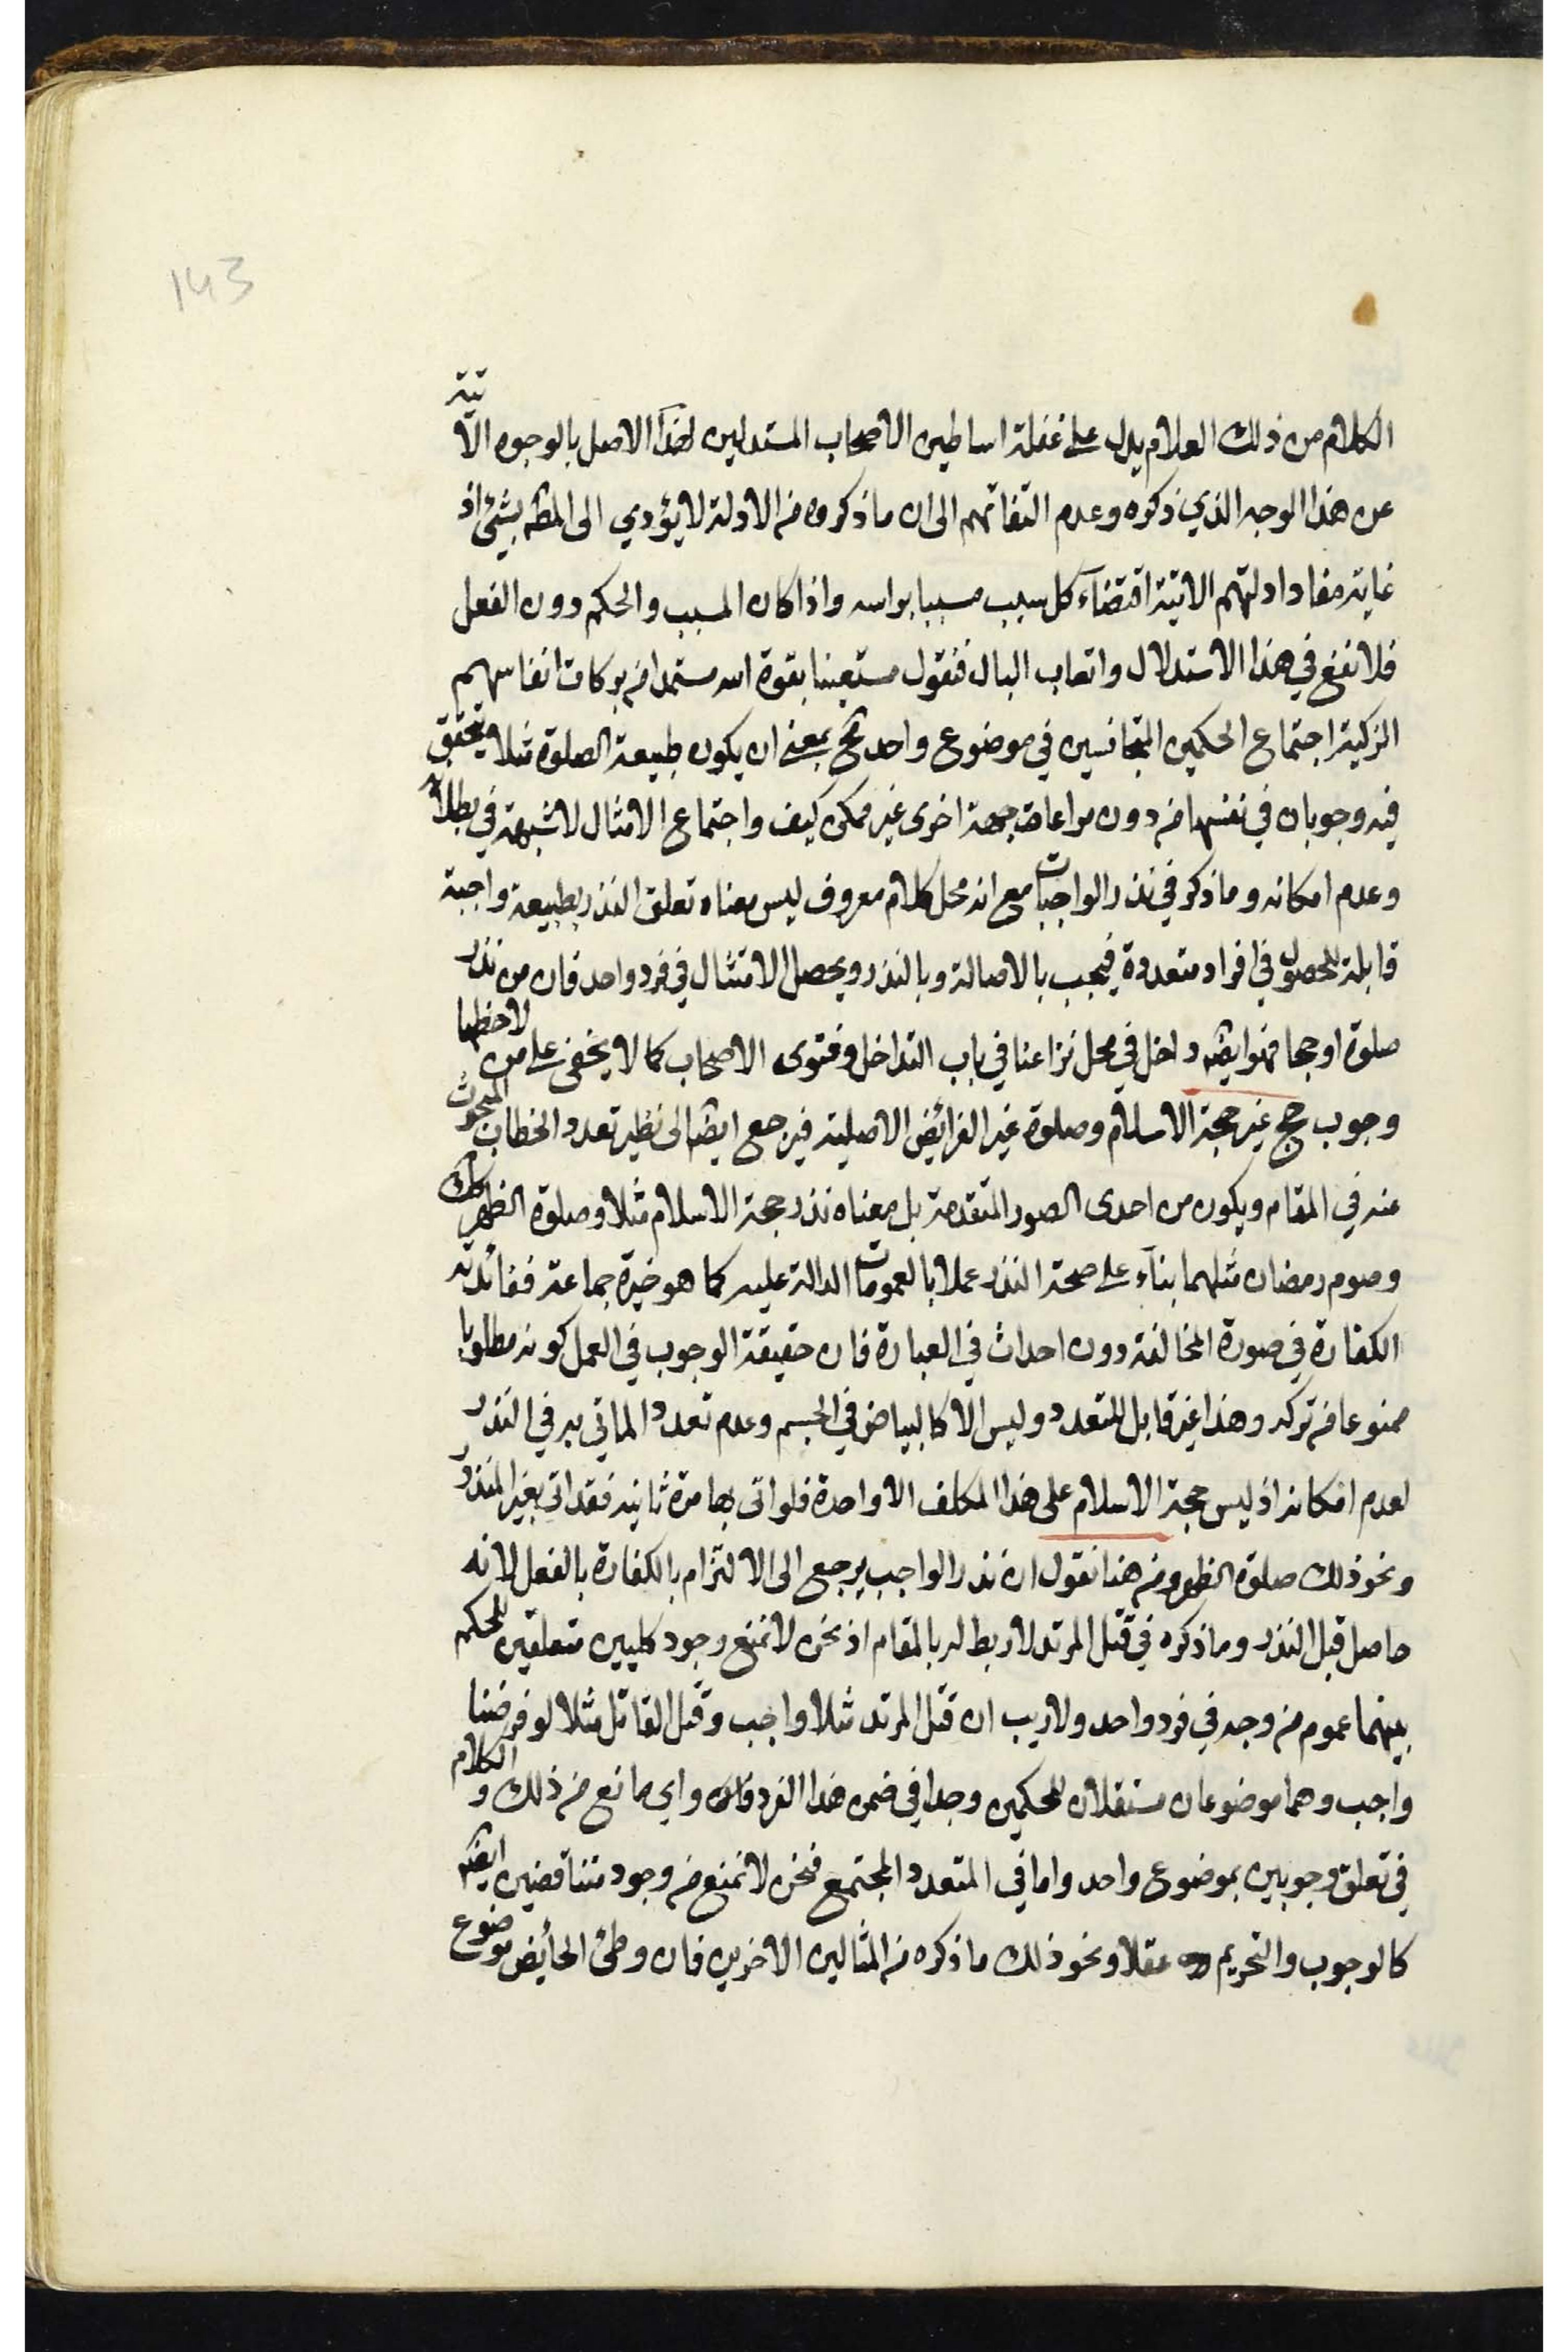 143
الكلام من ذلك العلام يدل على غفلة اساطين الاصحاب المستدلين لهذا الاصل بالوجوه الآتية
عن هذا الوجه الذي ذكره وعدم التفاتهم الى ان ما ذكروه من الادلة لا يؤدي الى المطه بشئ اذ
غاية مفاد ادلتهم الاتية اقتضاء كل سبب مسببا براسه واذا كان المسبب والحكم دون الفعل
فلا نفع في هذا الاستدلال واتعاب البال فنقول مستعينا بقوة الله مستمدا من بركات انفاسهم
الزكية اجتماع الحكمين المتجانسين في موضوع واحد مح بمعنى ان يكون طبيعة الصلوة مثلا يتحقق
فيه وجوبان في نفسها من دون مراعات جهة اخرى غير ممكن كيف واجتماع الامثال لا شبهة في بطلانه
وعدم امكانه وما ذكر في نذر الواجبات مع انه محل كلام معروف ليس معناه تعلق النذر بطبيعة واجبة
قابلة للحصول في افراد متعددة فيجب بالاصالة وبالنذر ويحصل الامتثال في فرد واحد فان من نذر
صلوة او حجا فهو ايضه داخل في محل نزاعنا في باب التداخل وفتوى الاصحاب كما لا يخفى على من لاحظها
وجوب حج غير حجة الاسلام وصلوة غير الفرائض الاصلية فيرجع ايضا الى نظير تعدد الخطاب المبحوث
عنه في المقام ويكون من احدى الصور المتقدمة بل معناه نذر حجة الاسلام مثلا وصلوة الظهر كك
وصوم رمضان مثلهما بناء على صحة النذر عملا بالعمومات الدالة عليه كما هو خيرة جماعة ففائدته
الكفارة في صورة المخالفة دون احداث في العبارة فان حقيقة الوجوب في العمل كونه مطلوبا
ممنوعا من تركه وهذا غير قابل للتعدد وليس الا كالبياض في الجسم وعدم تعدد الماتي به في النذر
لعدم امكانه اذ ليس حجة الاسلام على هذا المكلف الا واحدة فلو اتى بها مرة ثانية فقد اتى بغير المنذور
ونحو ذلك صلوة الظهر ومن هنا نقول ان نذر الواجب يرجع الى الالتزام بالكفارة بالفعل لانه
حاصل قبل النذر وما ذكره في قتل المرتد لا ربط له بالمقام اذ نحن لا نمنع وجود كليين متعلقين للحكم
بينهما عموم من وجه في فرد واحد ولا ريب ان قتل المرتد مثلا واجب وقتل القاتل مثلا لو فرضنا
واجب وهما موضوعان مستقلان للحكمين وجدا في ضمن هذا الفرد واي مانع من ذلك والكلام
في تعلق وجوبين بموضوع واحد واما في المتعدد المجتمع فنحن لا نمنع من وجود متناقضين ايضه
كالوجوب والتحريم عقلا ونحو ذلك ما ذكره من المثالين الاخرين فان وطئ الحائض موضوع